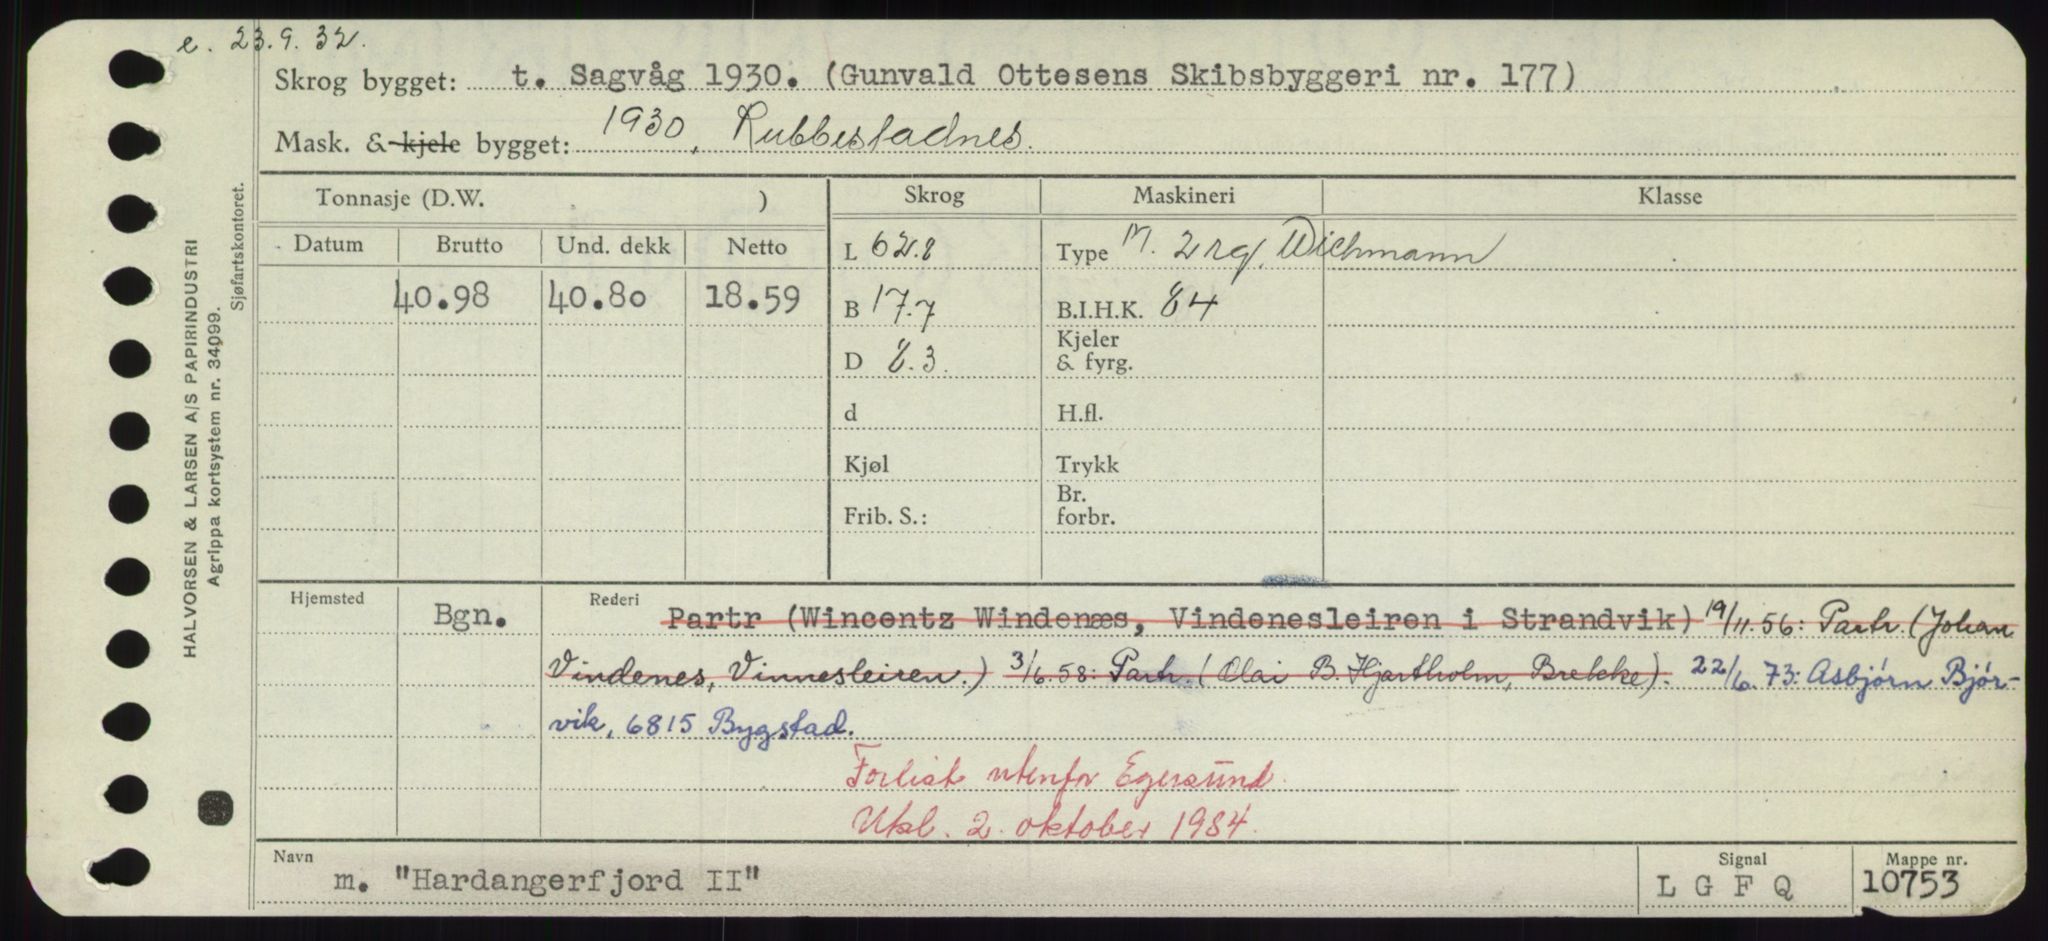 e. 23.9.32.
Skrog bygget: t. Sagvåg 1930. (Gunvald Ottesens Skibsbyggeri nr. 177)
Mask. & kjele bygget: 1930, Rubbestadnes.
Tonnasje (D.W. ) Skrog Maskineri Klasse
Datum Brutto Und. dekk Netto L 62.8 Type M. 2 syl. Wichmann
40.98 40.80 18.59 B 17.7 B.I.H.K. 84
D 8.3 Kjeler & fyrg.
d H.fl.
Kjøl Trykk
Frib. S.: Br. forbr.
Hjemsted Bgn. Rederi Partr (Wincentz Windenæs, Vindenesleiren i Strandvik) 19/11.56: Partr. (Johan
Vindenes, Vinnesleiren.) 3/6.58: Partr. (Olai B. Hjartholm, Brekke). 22/6.73: Asbjørn Bjør-
vik, 6815 Bygstad.
Forlist utenfr Egersund.
Utkl. 2. oktober 1984.
Navn m. "Hardangerfjord II" Signal L G F Q Mappe nr. 10753
HALVORSEN & LARSEN A/S PAPIRINDUSTRI
Agrippa kortsystem nr. 34099.
Sjøfartskontoret.